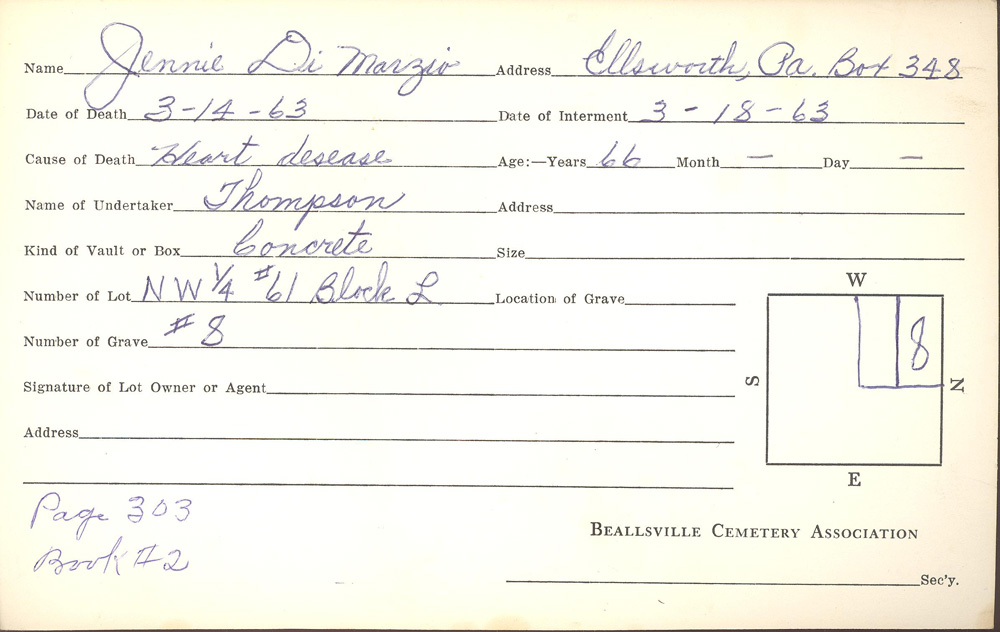 Name Jennie Di Marzio Address Ellsworth, Pa. Box 348
Date of Death 3-14-63 Date of Interment 3-18-63
Cause of Death Heart desease Age:—Years 66 Month — Day —
Name of Undertaker Thompson Address
Kind of Vault or Box Concrete Size
Number of Lot NW 1/4 #61 Block L Location of Grave
Number of Grave #8
Signature of Lot Owner or Agent
Address
W
8
S
N
E
Page 303
Book #2
Beallsville Cemetery Association
Sec'y.